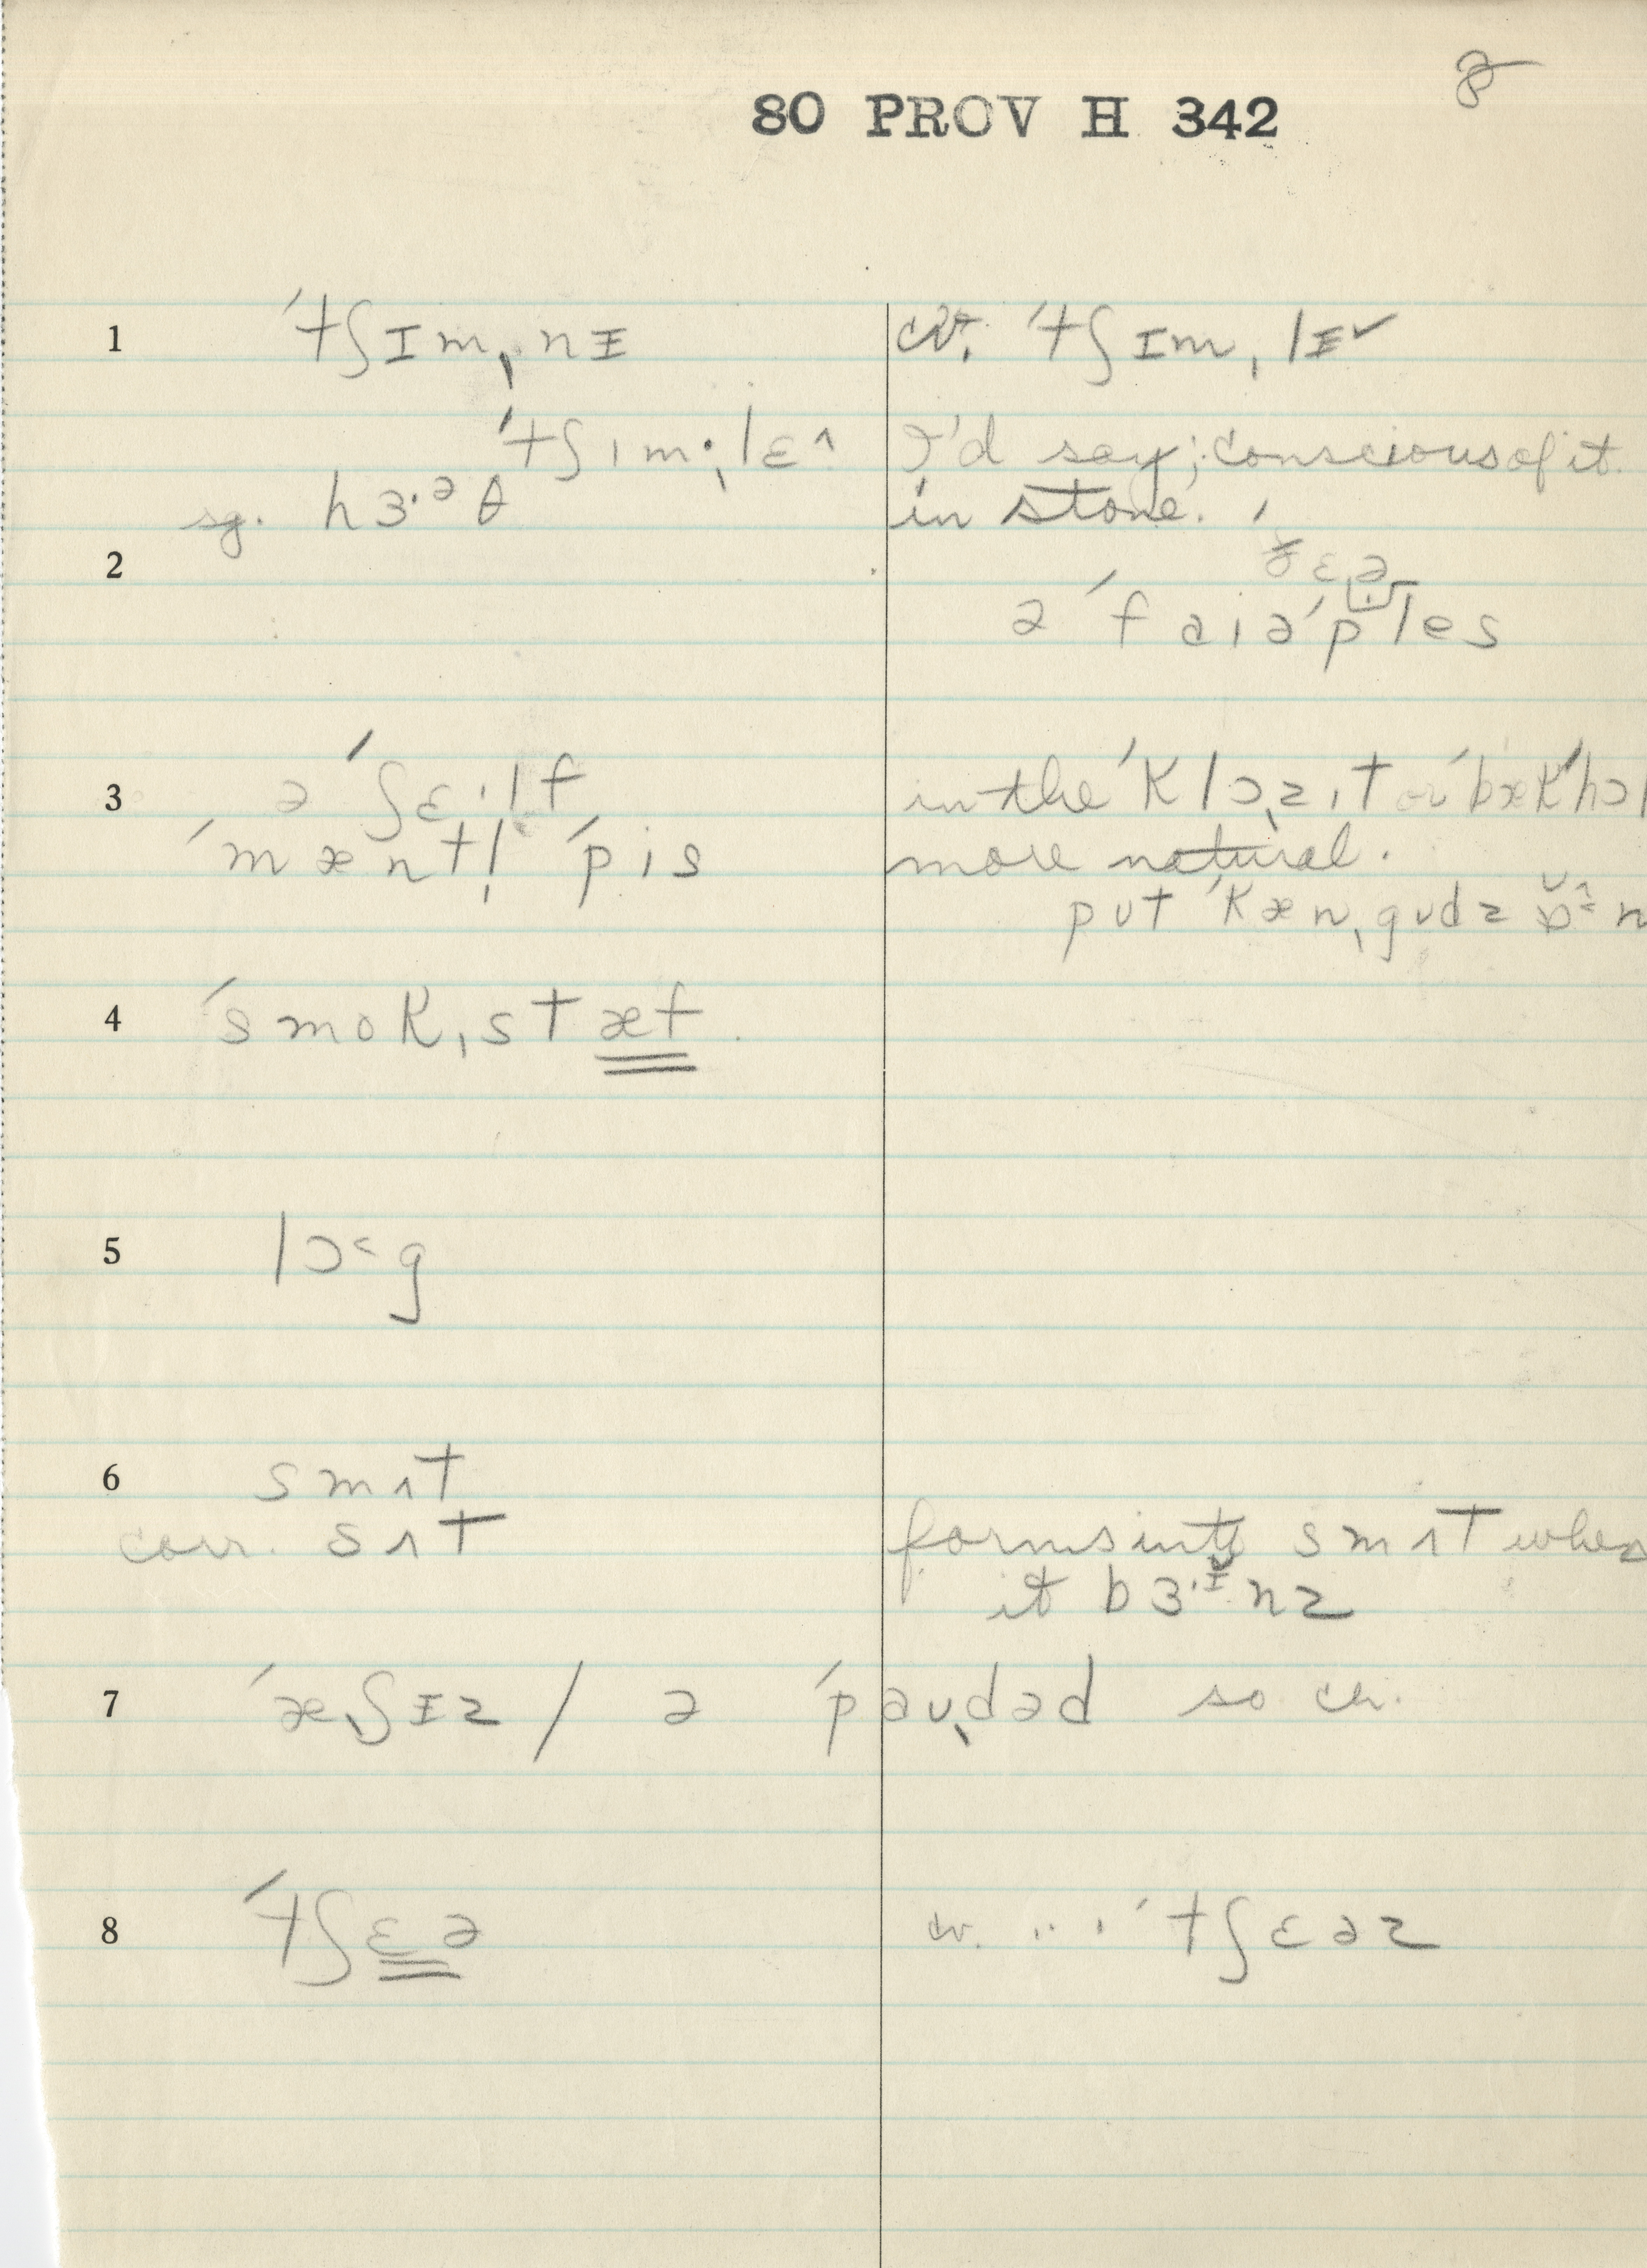 8
80 PROV H 342
1 ˈtʃɪmˌnɪ cv. ˈtʃɪmˌlɪ˅
ˈtʃımˌlɛ^ I'd say; conscious of it
sg. hɜ·ᵊθ in stone.
2 ðɛə
ə ˈfaiəˈples
3 ə ˈʃɛ·lf in the ˈklɔzˌıt or ˈbækˈhɔl
ˈmæntl̩ ˈpis more natural.
put ˈkænˌgudz
4 ˈsmokˌstæf
5 lɔ˂g
6 smʌt
corr. sʌt forms into smʌt when
it bɜ·ɪnz
7 ˈæˌʃɪz / ə ˈpauˌdəd so cv.
8 ˈtʃɛə cv. ... ˈtʃɛəz